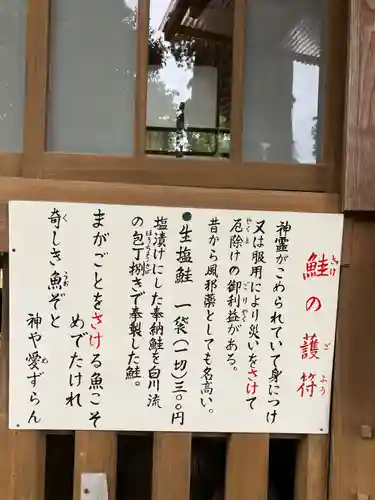 鮭の護符
神霊がこめられていて身につけ
又は服用により災いをさけて
厄除けの御利益がある。
昔から風邪薬としても名高い。
●生塩鮭 一袋(一切)三〇〇円
塩漬けにした奉納鮭を白川流
の包丁捌きで奉製した鮭。
まがごとをさける魚こそ
めでたけれ
奇しき魚ぞと
神や愛ずらん